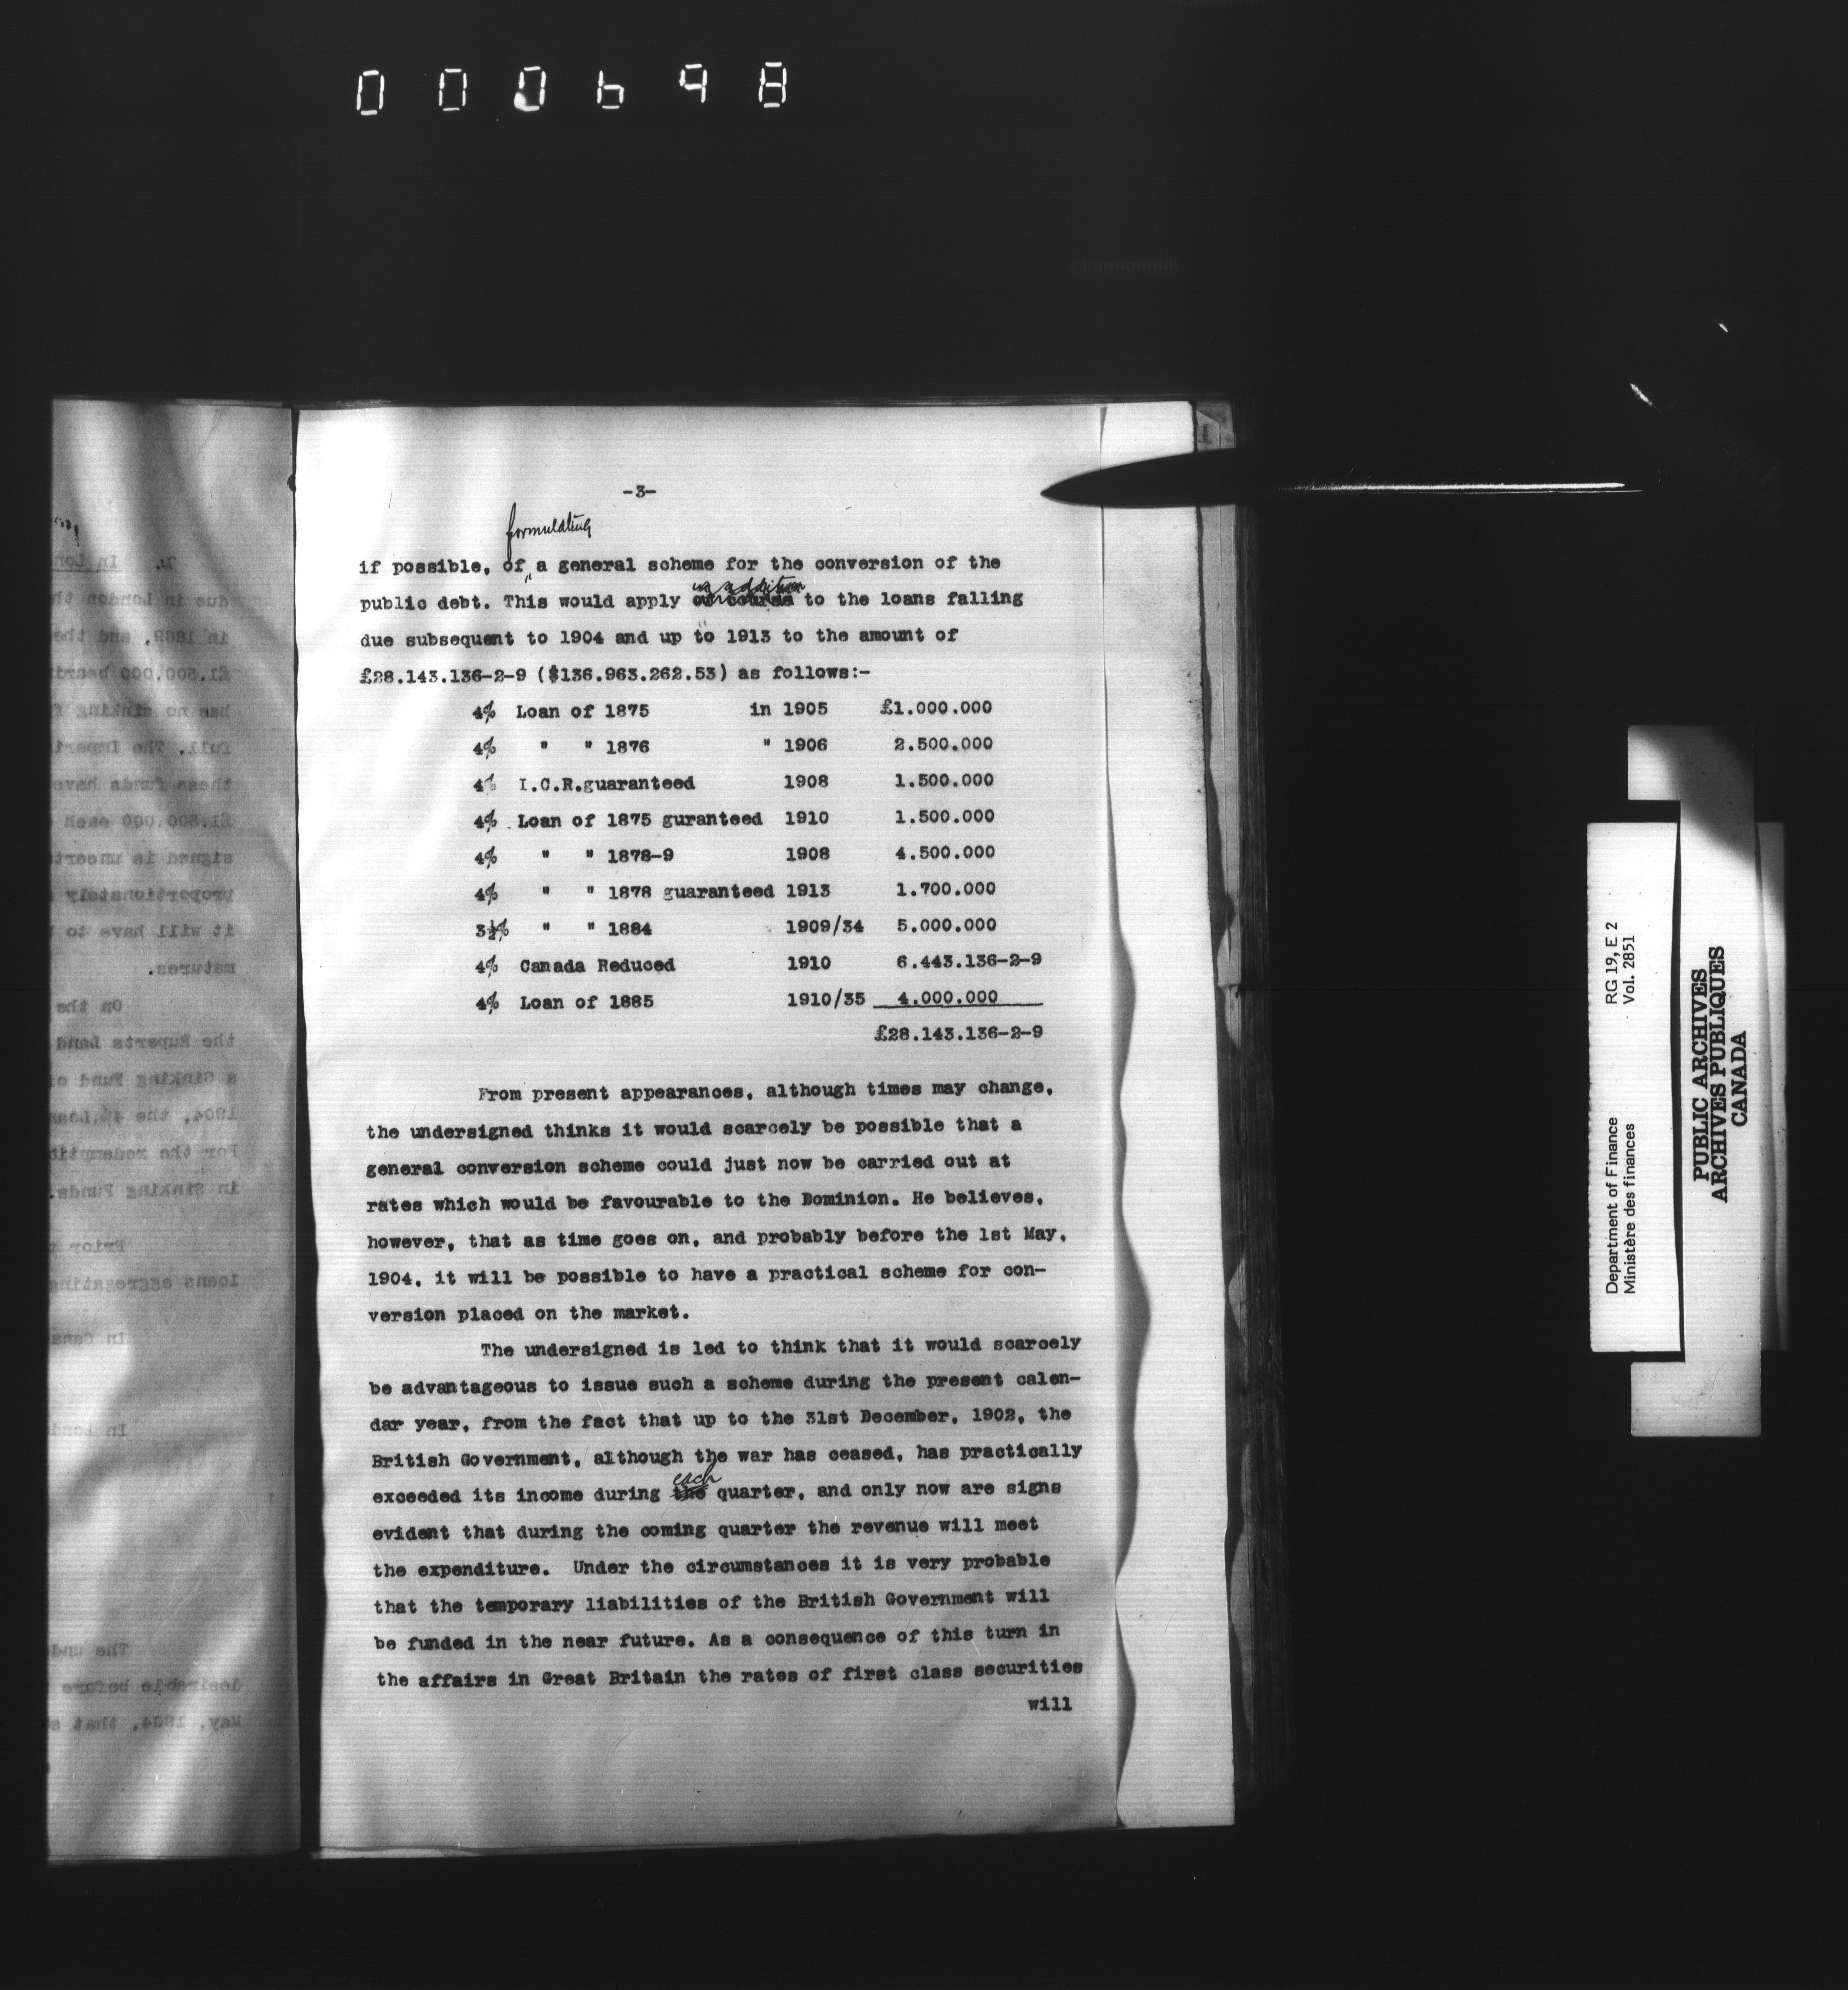 000698
-3-
formulating
if possible, of a general scheme for the conversion of the
in addition
public debt. This would apply of course to the loans falling
due subsequent to 1904 and up to 1913 to the amount of
£28.143.136-2-9 ($136.963.262.53) as follows:-
4% Loan of 1875 in 1905 £1.000.000
4% " " 1876 " 1906 2.500.000
4% I.C.R.guaranteed 1908 1.500.000
4% Loan of 1875 guranteed 1910 1.500.000
4% " " 1878-9 1908 4.500.000
4% " " 1878 guaranteed 1913 1.700.000
3½% " " 1884 1909/34 5.000.000
4% Canada Reduced 1910 6.443.136-2-9
4% Loan of 1885 1910/35 4.000.000
£28.143.136-2-9
From present appearances, although times may change,
the undersigned thinks it would scarcely be possible that a
general conversion scheme could just now be carried out at
rates which would be favourable to the Dominion. He believes,
however, that as time goes on, and probably before the 1st May,
1904, it will be possible to have a practical scheme for con-
version placed on the market.
The undersigned is led to think that it would scarcely
be advantageous to issue such a scheme during the present calen-
dar year, from the fact that up to the 31st December, 1902, the
British Government, although the war has ceased, has practically
each
exceeded its income during the quarter, and only now are signs
evident that during the coming quarter the revenue will meet
the expenditure. Under the circumstances it is very probable
that the temporary liabilities of the British Government will
be funded in the near future. As a consequence of this turn in
the affairs in Great Britain the rates of first class securities
will
Department of Finance RG 19, E 2
Ministère des finances Vol. 2851
PUBLIC ARCHIVES
ARCHIVES PUBLIQUES
CANADA